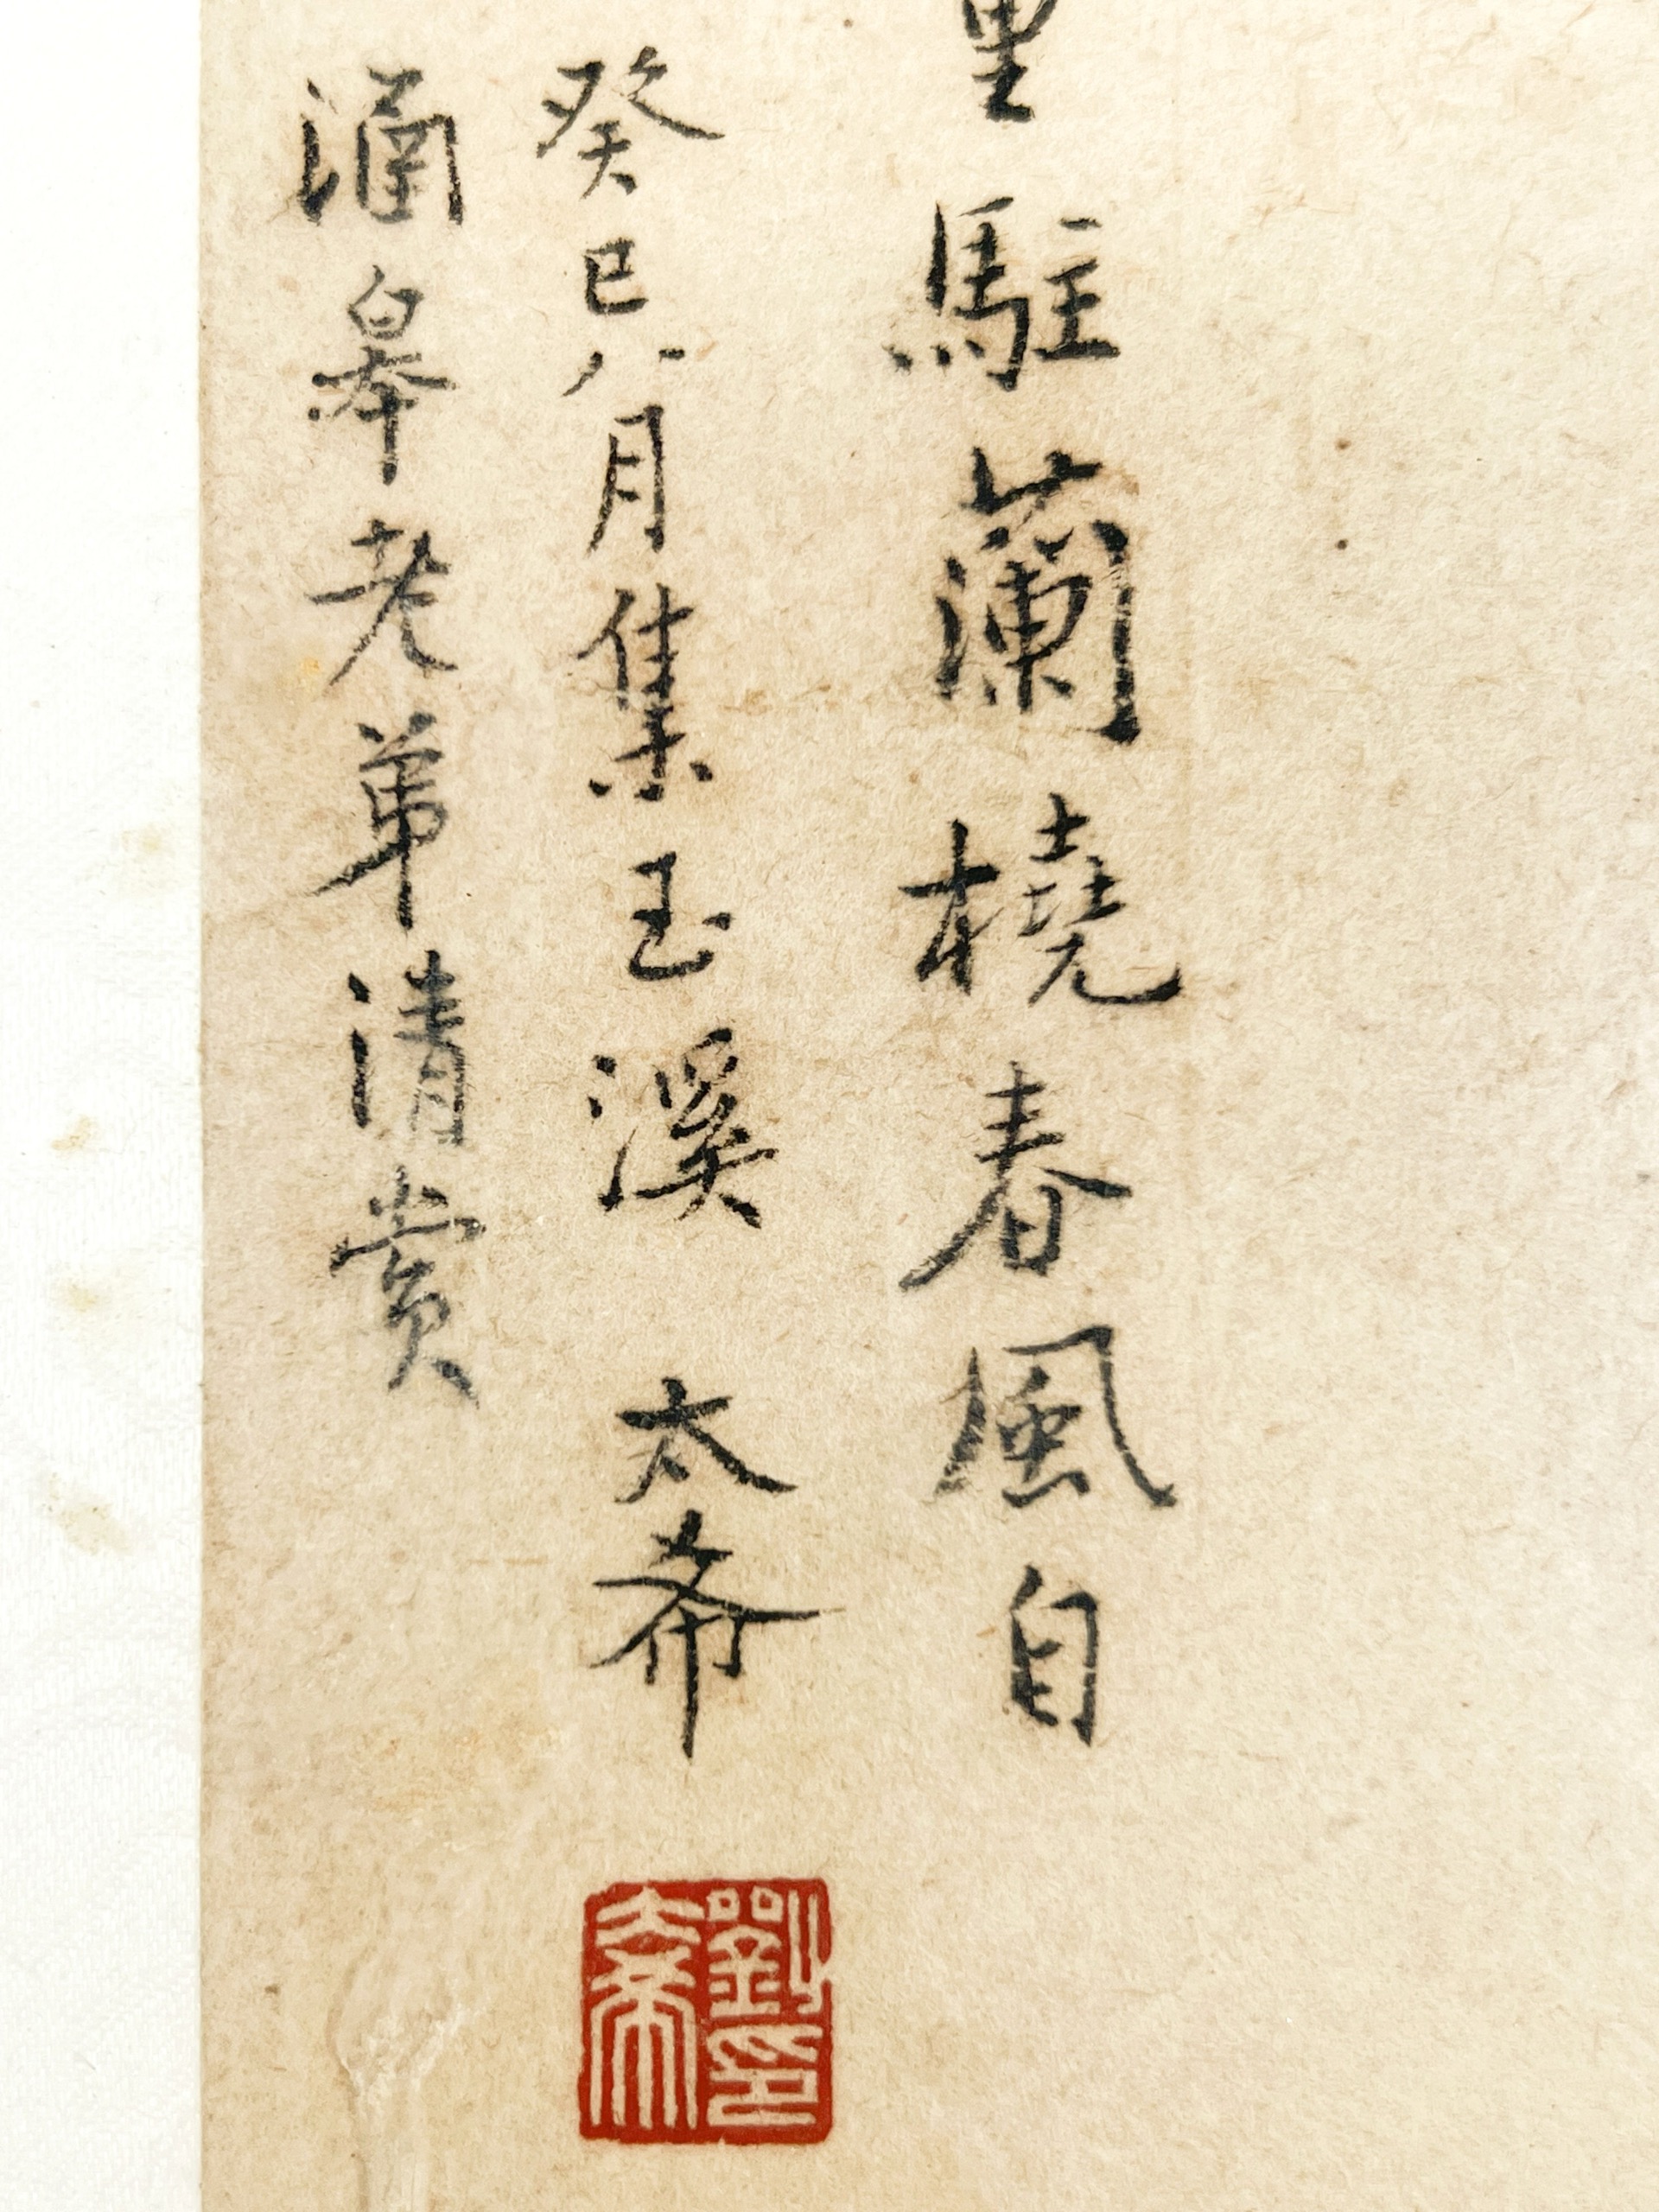 駐蘭橈春風自
癸巳八月集玉溪 太希
皋老弟清賞
劉印太希